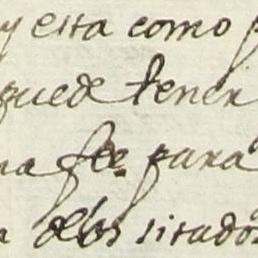 y esta como p
puede tener
na fee para
n delos situados